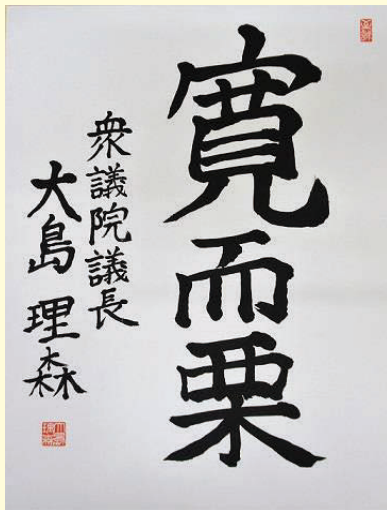 寛而栗
衆議院議長
大島理森